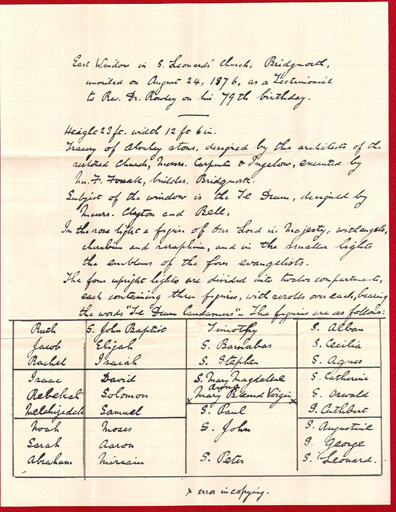 East Window in S. Leonards' Church, Bridgnorth,
unveiled on August 24, 1876, as a Testimonial
to Rev. Dr. Rowley on his 79th birthday.
Height 23 ft. width 12 ft 6 in.
Tracery of Alveley stone, designed by the architects of the
restored Church, Messrs. Carpenter & Ingelow, executed by
Mr. F. builder, Bridgnorth.
Subject of the window is the Te Deum, designed by
Messrs. Clayton and Bell.
In the rose light a figure of Our Lord in Majesty, with angels,
cherubim and seraphim, and in the smaller lights
the emblems of the four evangelists.
The four upright lights are divided into twelve compartments,
each containing three figures, with scrolls over each, bearing
the words "Te Deum Laudamus". The figures are as follows:
Ruth S. John Baptist Timothy S. Alban
Jacob Elijah S. Barnabas S. Cecilia
Rachel Isaiah S. Stephen S. Agnes
Isaac David S. Mary Magdalene S. Catherine
Rebekah Solomon Mary Blessed Virgin x S. Oswald
Melchizedek Samuel S. Paul S. Cuthbert
Noah Moses S. John S. Augustine
Sarah Aaron S. George
Abraham Miriam S. Peter S. Leonard.
x error in copying.